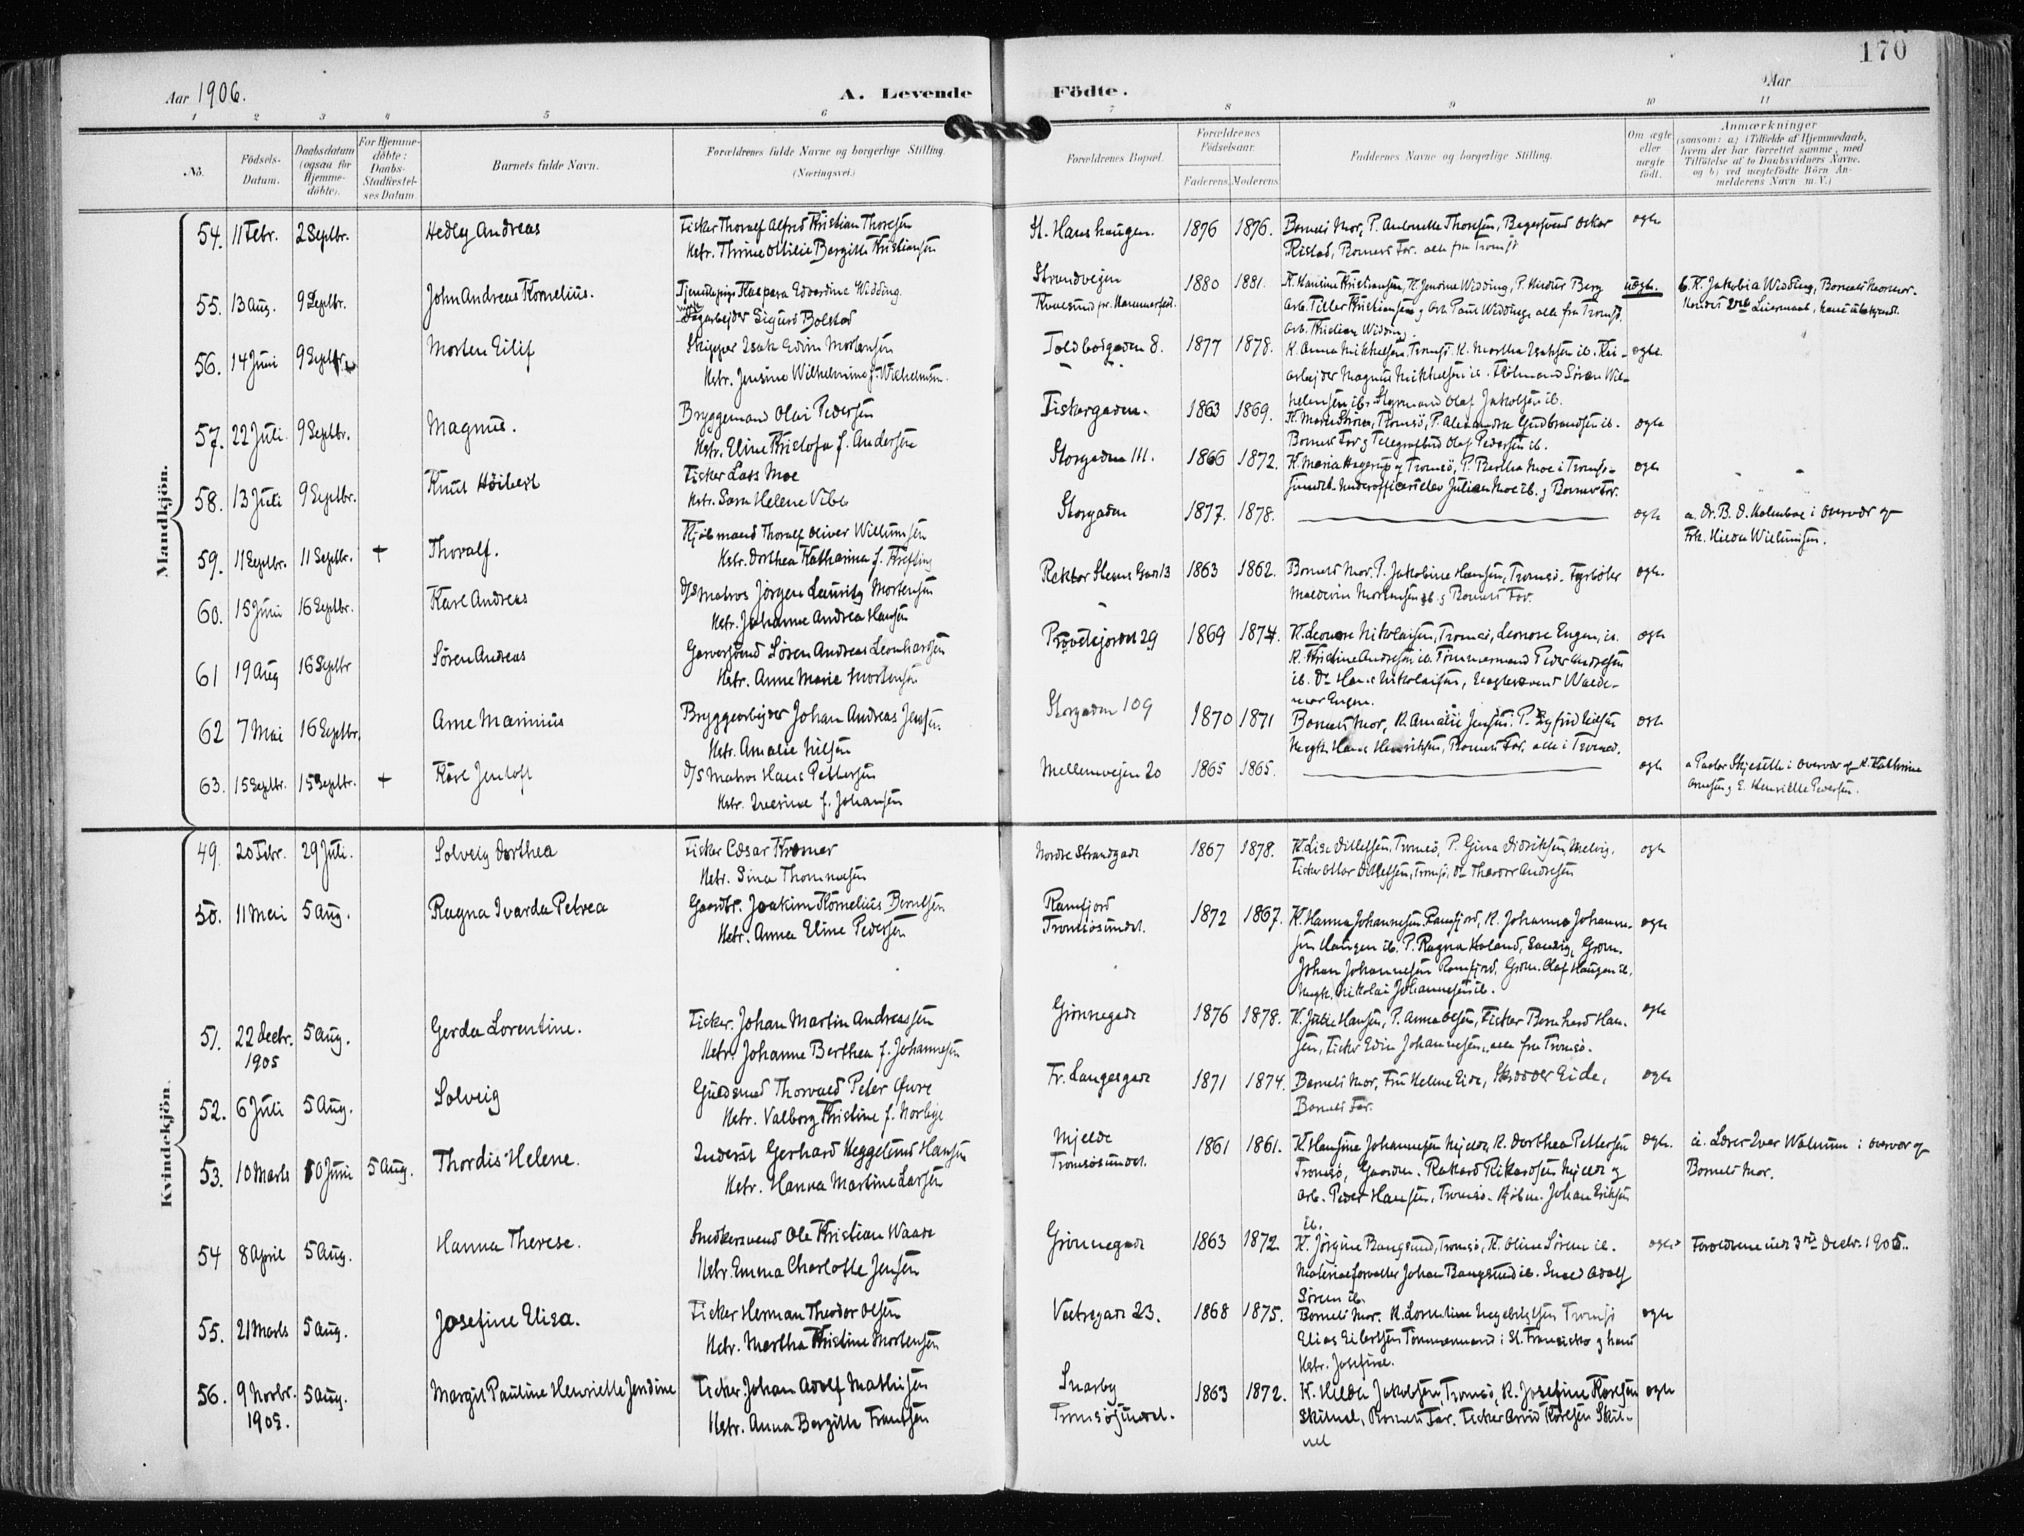 170
Aar 1906.
A. Levende Födte.
Aar
1 2 3 4 5 6 7 8 9 10 11
No.
Födsels-Datum.
Daabsdatum (ogsaa for Hjemme-döbte).
For Hjemme-döbte: Daabs-Stadfæstel-ses Datum.
Barnets fulde Navn.
Forældrenes fulde Navne og borgerlige Stilling. (Næringsvei.)
Forældrenes Bopæl.
Forældrenes Födselsaar.
Faderens. Moderens.
Faddernes Navne og borgerlige Stilling.
Om ægte eller uægte födt.
Anmærkninger
(saasom: a) i Tilfælde af Hjemmedaab, hvem der har forrettet samme, med Tilföielse af to Daabsvidners Navne, og b) ved uægtefödte Börn An-melderens Navn m. V.)
Mandkjön.
54. 11 Febr. 2 Septbr. Hedley Andreas
Fisker Thoralf Alfred Kristian Thoresen
Hstr. Thrine Othilie Bergitte Kristiansen
St. Hanshaugen. 1876 1876.
Barnets Mor, P. Antonette Thoresen, Bagersvend Oskar
Ristad, Barnets Far. alle fra Tromsø
ægte
55. 13 Aug. 9 Septbr. John Andreas Kornelius.
Tjenestepige Kaspara Edvardine Widding.
Dagarbejder Sigurd Bolstad
Strandvejen
Kvalsund pr. Hammerfest.
1880 1881.
K. Hansine Kristiansen, K. Jensine Widding, P. Hildur Berg
Arb. Peder Kristiansen og Arb. Paul Widding, alle fra Tromsø.
Arb. Kristian Widding.
uægte.
b. K. Jakobia Widding, Barnets Mormor.
56. 14 Juni 9 Septbr. Morten Eilif
Skipper Isak Edvin Mortensen
Hstr. Jensine Wilhelmine f. Wilhelmsen.
Toldbodgaden 8. 1877 1878.
K. Anna Mikkelsen, Tromsø. K. Martha Isaksen ib. Kai-
arbejder Magnus Mikkelsen ib. Kølmand Søren Wil-
helmsen ib. Styrmand Olaf Jakobsen ib.
ægte.
57. 22 Juli 9 Septbr. Magnus.
Bryggemand Olai Pedersen
Hstr. Eline Kristofa f. Andersen
Fiskergaden. 1863 1869.
K. Marie Strøm, Tromsø, P. Alexandra Gudbrandsen ib.
Barnets Far og Telegrafbud Olaf Pedersen ib.
ægte
58. 13 Juli 9 Septbr. Knut Høibert
Fisker Lars Moe
Hstr. Sara Helene Vibe
Storgaden 111. 1866 1872.
K. Maria Hagerup, Tromsø, P. Bertha Moe i Tromsø-
sundet. Underofficerselev Julian Moe ib. og Barnets Far.
ægte
59. 11 Septbr. 11 Septbr. + Thoralf.
Kjøbmand Thoralf Oliver Willumsen
Hstr. Dorthea Katharina f. Kræfting
Storgaden 1877. 1878.
ægte
a. Dr. B. D. Holmboe i Overvær af
Frk. Hilda Willumsen.
60. 15 Juni 16 Septbr. Karl Andreas
D/S Matros Jørgen Lauritz Mortensen
Hstr. Johanna Andrea Hansen
Rektor Steens Gad 13 1863 1862.
Barnets Mor. P. Jakobine Hansen, Tromsø. Fyrbøter
Maldevin Mortensen ib. og Barnets Far.
ægte.
61 19 Aug 16 Septbr Søren Andreas
Garversvend Søren Andreas Leonhardsen
Hstr. Anne Marie Mortensen
Prøvstejordet 29 1869 1874.
K. Leonore Nikolaisen, Tromsø, Leonore Engen, ib.
K. Kristine Andresen ib. Tømmermand Peder Andresen
ib. Do Hans Nikolaisen, Waldemar Engen.
ægte
62 7 Mai 16 Septbr. Arne Marinius
Bryggearbejder Johan Andreas Jensen.
Hstr. Amalie Nilsen
Storgaden 109 1870 1871
Barnets Mor, K. Amalie Jensen. P.
Ungk. Hans Henriksen, Barnets Far. alle i Tromsø.
ægte
63. 15 Septbr. 15 Septbr. + Kåre Jentoft
D/S Matros Hans Pettersen
Hstr. f. Johansen
Mellemvejen 20 1865 1865.
ægte
a Pastor Skjeseth i Overvær af K. Kathrine
Arnesen og E. Henriette Pedersen.
Kvindekjön.
49. 20 Febr. 29 Juli. Solveig Dorthea
Fisker Cæsar Kræmer
Hstr. Sina Thommesen
Nordre Strandgade 1867 1878.
K. Lise Ditlefsen, Tromsø, P. Gina Didriksen, Melvig.
Fisker Ottar Ditlefsen, Tromsø, Do Theodor Andresen
ægte
50. 11 Mai 5 Aug. Ragna Ivarda Petrea
Gaardbr. Joakim Kornelius Berntsen
Hstr. Anna Eline Pedersen
Ramfjord
Tromsøsundet.
1872 1867.
K. Hanna Johannesen Ramfjord, K. Johanna Johanne-
sen Haugen ib. P. Ragna Haland, Sandvig, Grdm.
Johan Johannesen Ramfjord, Grdm. Olaf Haugen ib.
Ungk. Nikolai Johannesen ib.
ægte
51. 22 Decbr. 1905 5 Aug. Gerda Lorentine.
Fisker Johan Martin Andreassen
Hstr. Johanne Berthea f. Johannesen
Grønnegade 1876 1878.
K. Julie Hansen, P. Anna Olsen, Fisker Bernhard Han-
sen, Fisker Edin Johannesen, alle fra Tromsø.
ægte
52. 6 Juli 5 Aug. Solveig
Guldsmed Thorvald Peter Øwre
Hstr. Valborg Kristine f. Norbye
Fr. Langesgade 1871 1874.
Barnets Mor, Fru Helene Eide, Skrædder Eide,
Barnets Far.
ægte
53. 10 Marts 10 Juni 5 Aug. Thordis Helene.
Inderst Gerhard Heggelund Hansen
Hstr. Hanna Martine Larsen
Mjelde
Tromsøsundet.
1861 1861.
K. Hansine Johannesen Mjelde, K. Dorthea Pettersen
Tromsø, Gaardm. Rikard Rikardsen Mjelde og
Arb. Peder Hansen, Tromsø. Kjøbm. Johan Eriksen
ib.
ægte.
a. Lærer Iver Walnum i Overvær af
Barnets Mor.
54 8 April 5 Aug. Hanna Therese.
Snedkersvend Ole Kristian Waade
Hstr. Emma Charlotte Jensen
Grønnegade 1863 1872.
K. Jørgine Bangsund, Tromsø, K. Oline Sørem ib.
Materialforvalter Johan Bangsund ib. Adolf
Sørem ib.
ægte
Forældrene viet 3die Decbr. 1905.
55. 21 Marts 5 Aug. Josefine Elisa.
Fisker Herman Theodor Olsen
Hstr. Martha Kristine Mortensen
Vestregade 23. 1868 1875.
Barnets Mor. K. Lorentine Ingebrigtsen Tromsø
Elias Eilertsen Tømmermand i St. Francisko og hans
Hstr. Josefine.
ægte
56. 9 Novbr. 1905. 5 Aug. Margit Pauline Henriette Jendine
Fisker Johan Adolf Mathisen
Hstr. Anna Bergitte Frantsen
Snarby
Tromsøsundet.
1863 1872.
K. Hilda Jakobsen, Tromsø, K. Josefine Karlsen
Skitnel, Barnets Far. Fisker Arvid Karlsen Skit-
nel
ægte